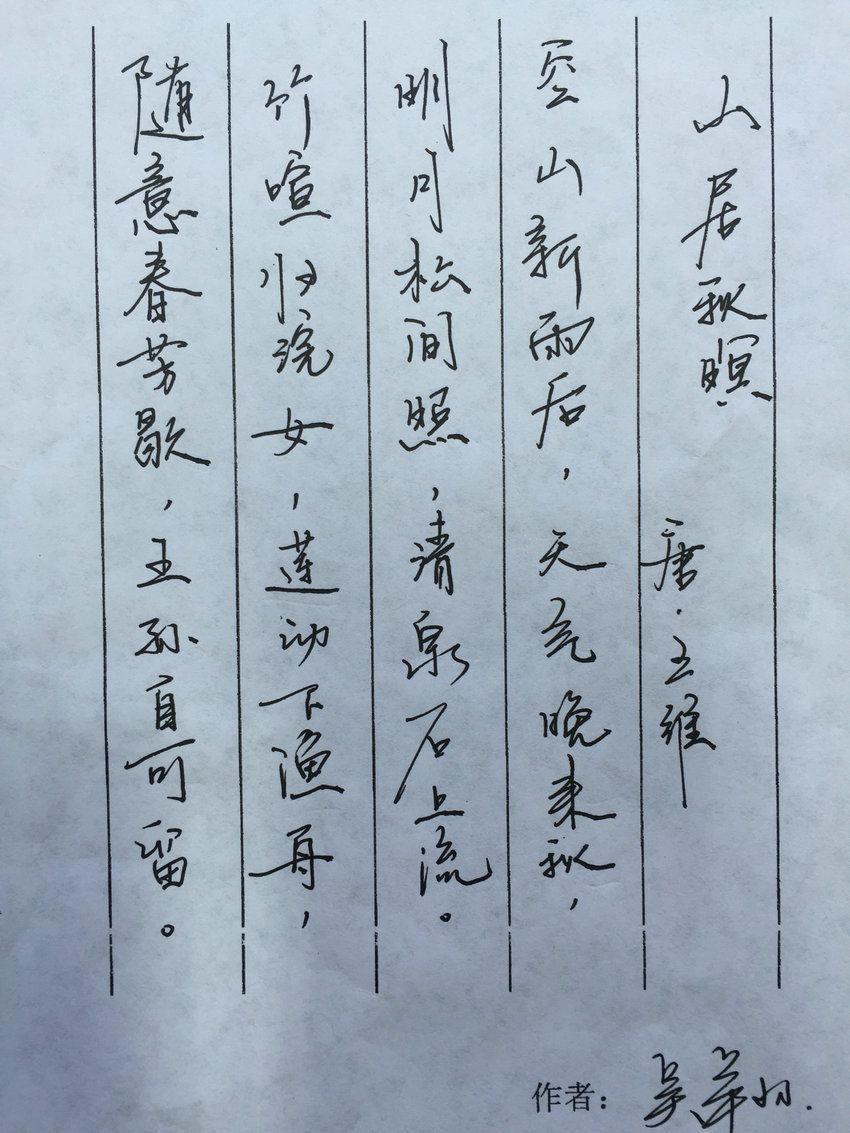 山居秋暝 唐·王维
空山新雨后，天气晚来秋，
明月松间照，清泉石上流。
竹喧归浣女，莲动下渔舟，
随意春芳歇，王孙自可留。
作者：吴